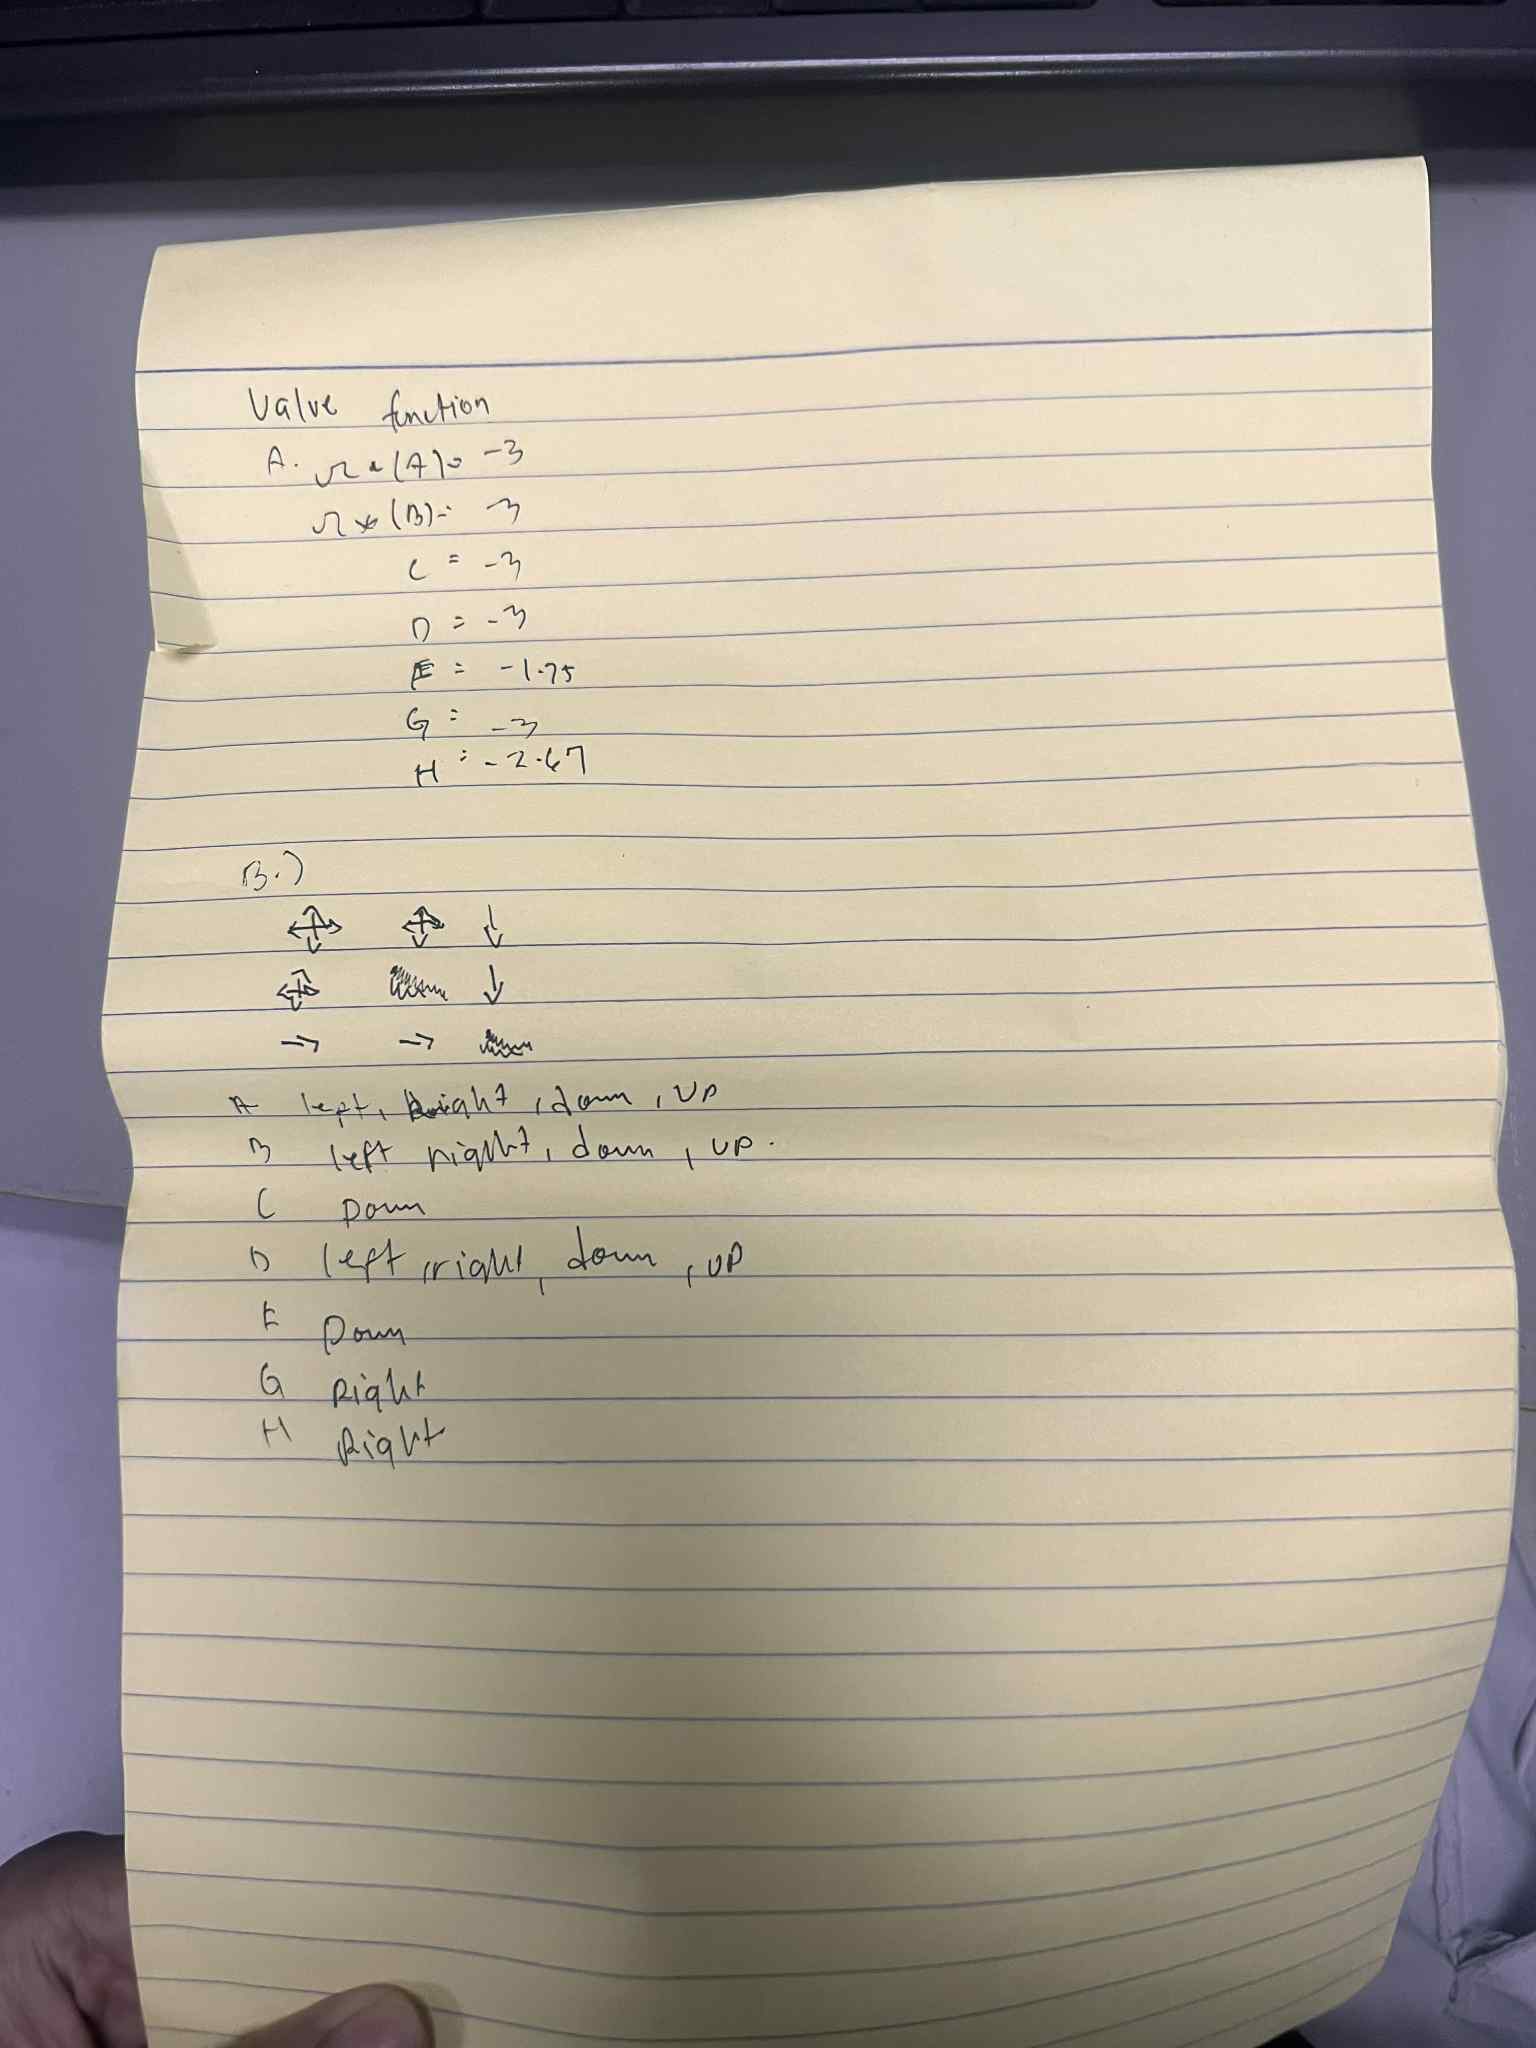 Value function
A. v*(A)= -3
v*(B)= -3
C = -3
D = -3
E = -1.75
G = -3
H = -2.67
B.)
↓
↓
→ →
A left, right, down, up
B left right, down, up.
C Down
D left, right, down, up
E Down
G Right
H Right